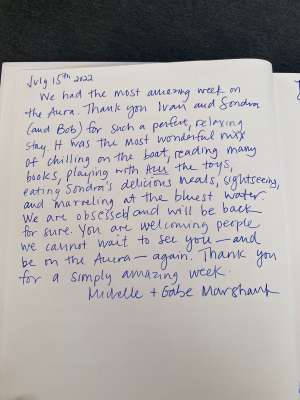 July 15th 2022
We had the most amazing week on
the Aura. Thank you Ivan and Sondra
(and Bob) for such a perfect, relaxing
stay. It was the most wonderful mix
of chilling on the boat, reading many
books, playing with ALL the toys,
eating Sondra's delicious meals, sightseeing,
and marveling at the bluest water.
We are obsessed and will be back
for sure. You are welcoming people
we cannot wait to see you — and
be on the Aura — again. Thank you
for a simply amazing week.
Michelle + Gabe